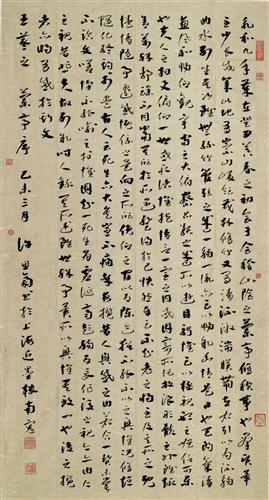 永和九年歲在癸丑暮春之初會于會稽山陰之蘭亭修禊事也群賢畢
至少長咸集此地有崇山峻領茂林修竹又有清流激湍映帶左右引以為流觴
曲水列坐其次雖無絲竹管弦之盛一觴一詠亦足以暢敘幽情是日也天朗氣清
惠風和暢仰觀宇宙之大俯察品類之盛所以遊目騁懷足以極視聽之娛信可樂
也夫人之相與俯仰一世或取諸懷抱悟言一室之內或因寄所託放浪形骸之外雖趣
舍萬殊靜躁不同當其欣於所遇暫得於己快然自足不知老之將至及其所之既
倦情隨事遷感慨係之矣向之所欣俛仰之間以為陳迹猶不能不以之興懷況脩短
隨化終期於盡古人云死生亦大矣豈不痛哉每攬昔人興感之由若合一契未嘗不臨
文嗟悼不能喻之於懷固知一死生為虛誕齊彭殤為妄作後之視今亦由今
之視昔悲夫故列敘時人錄其所述雖世殊事異所以興懷其致一也後之攬
者亦將有感於斯文
王羲之蘭亭序 己未三月 書於上海